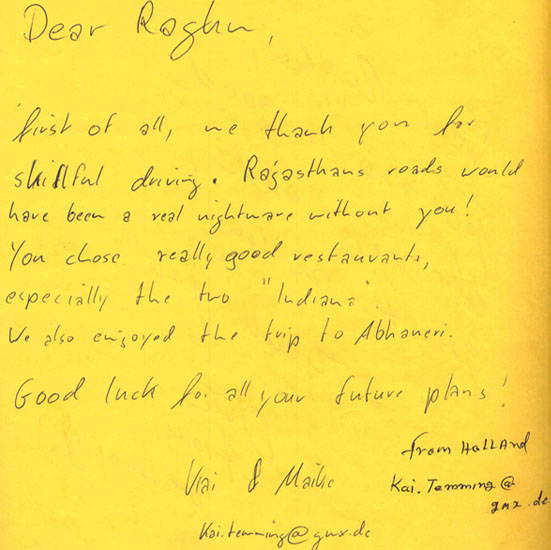 Dear Raghu,
first of all, we thank you for
skillful driving. Rajasthans roads would
have been a real nightmare without you!
You chose really good restaurants,
especially the two "Indiana".
We also enjoyed the trip to Abhaneri.
Good luck for all your future plans!
from HOLLAND
Kai & Maike
Kai.Temming@
gmx.de
Kai.temming@gmx.de